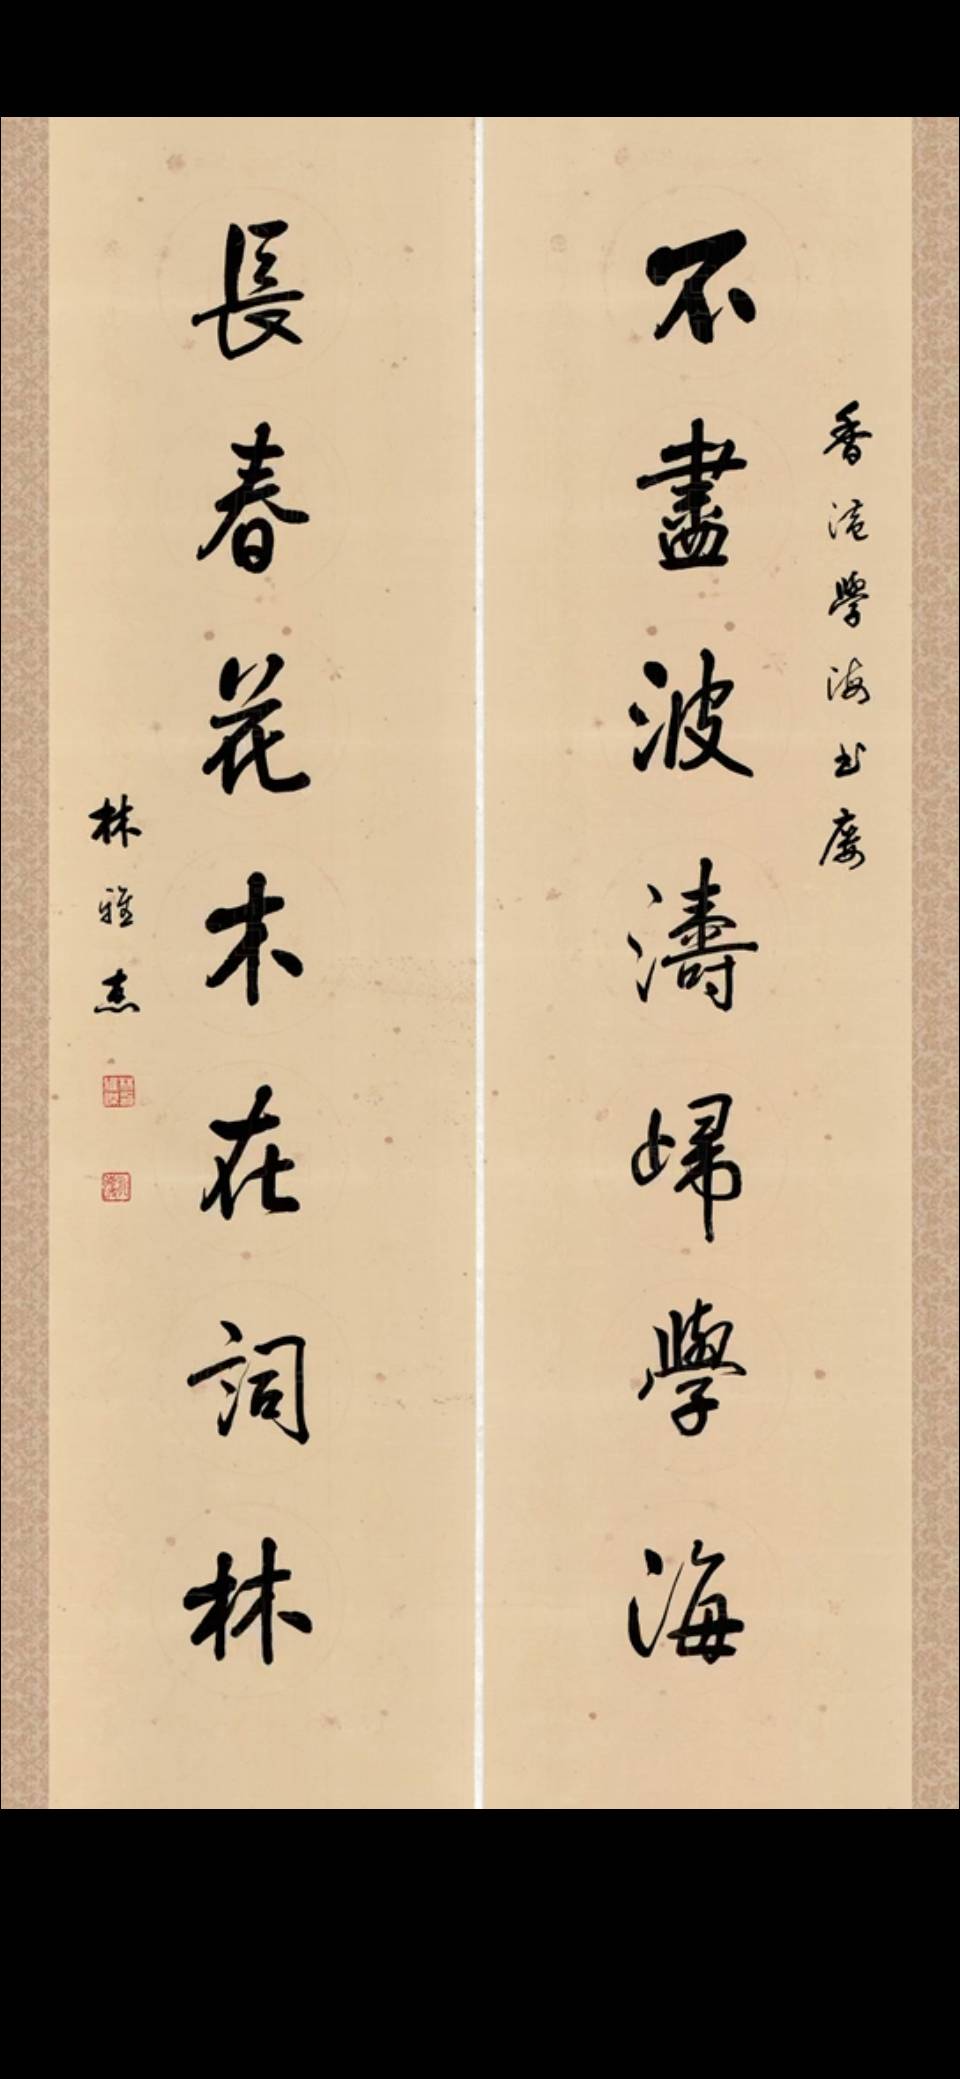 香港學海書廔
不盡波濤歸學海
長春花木在詞林
林雅杰